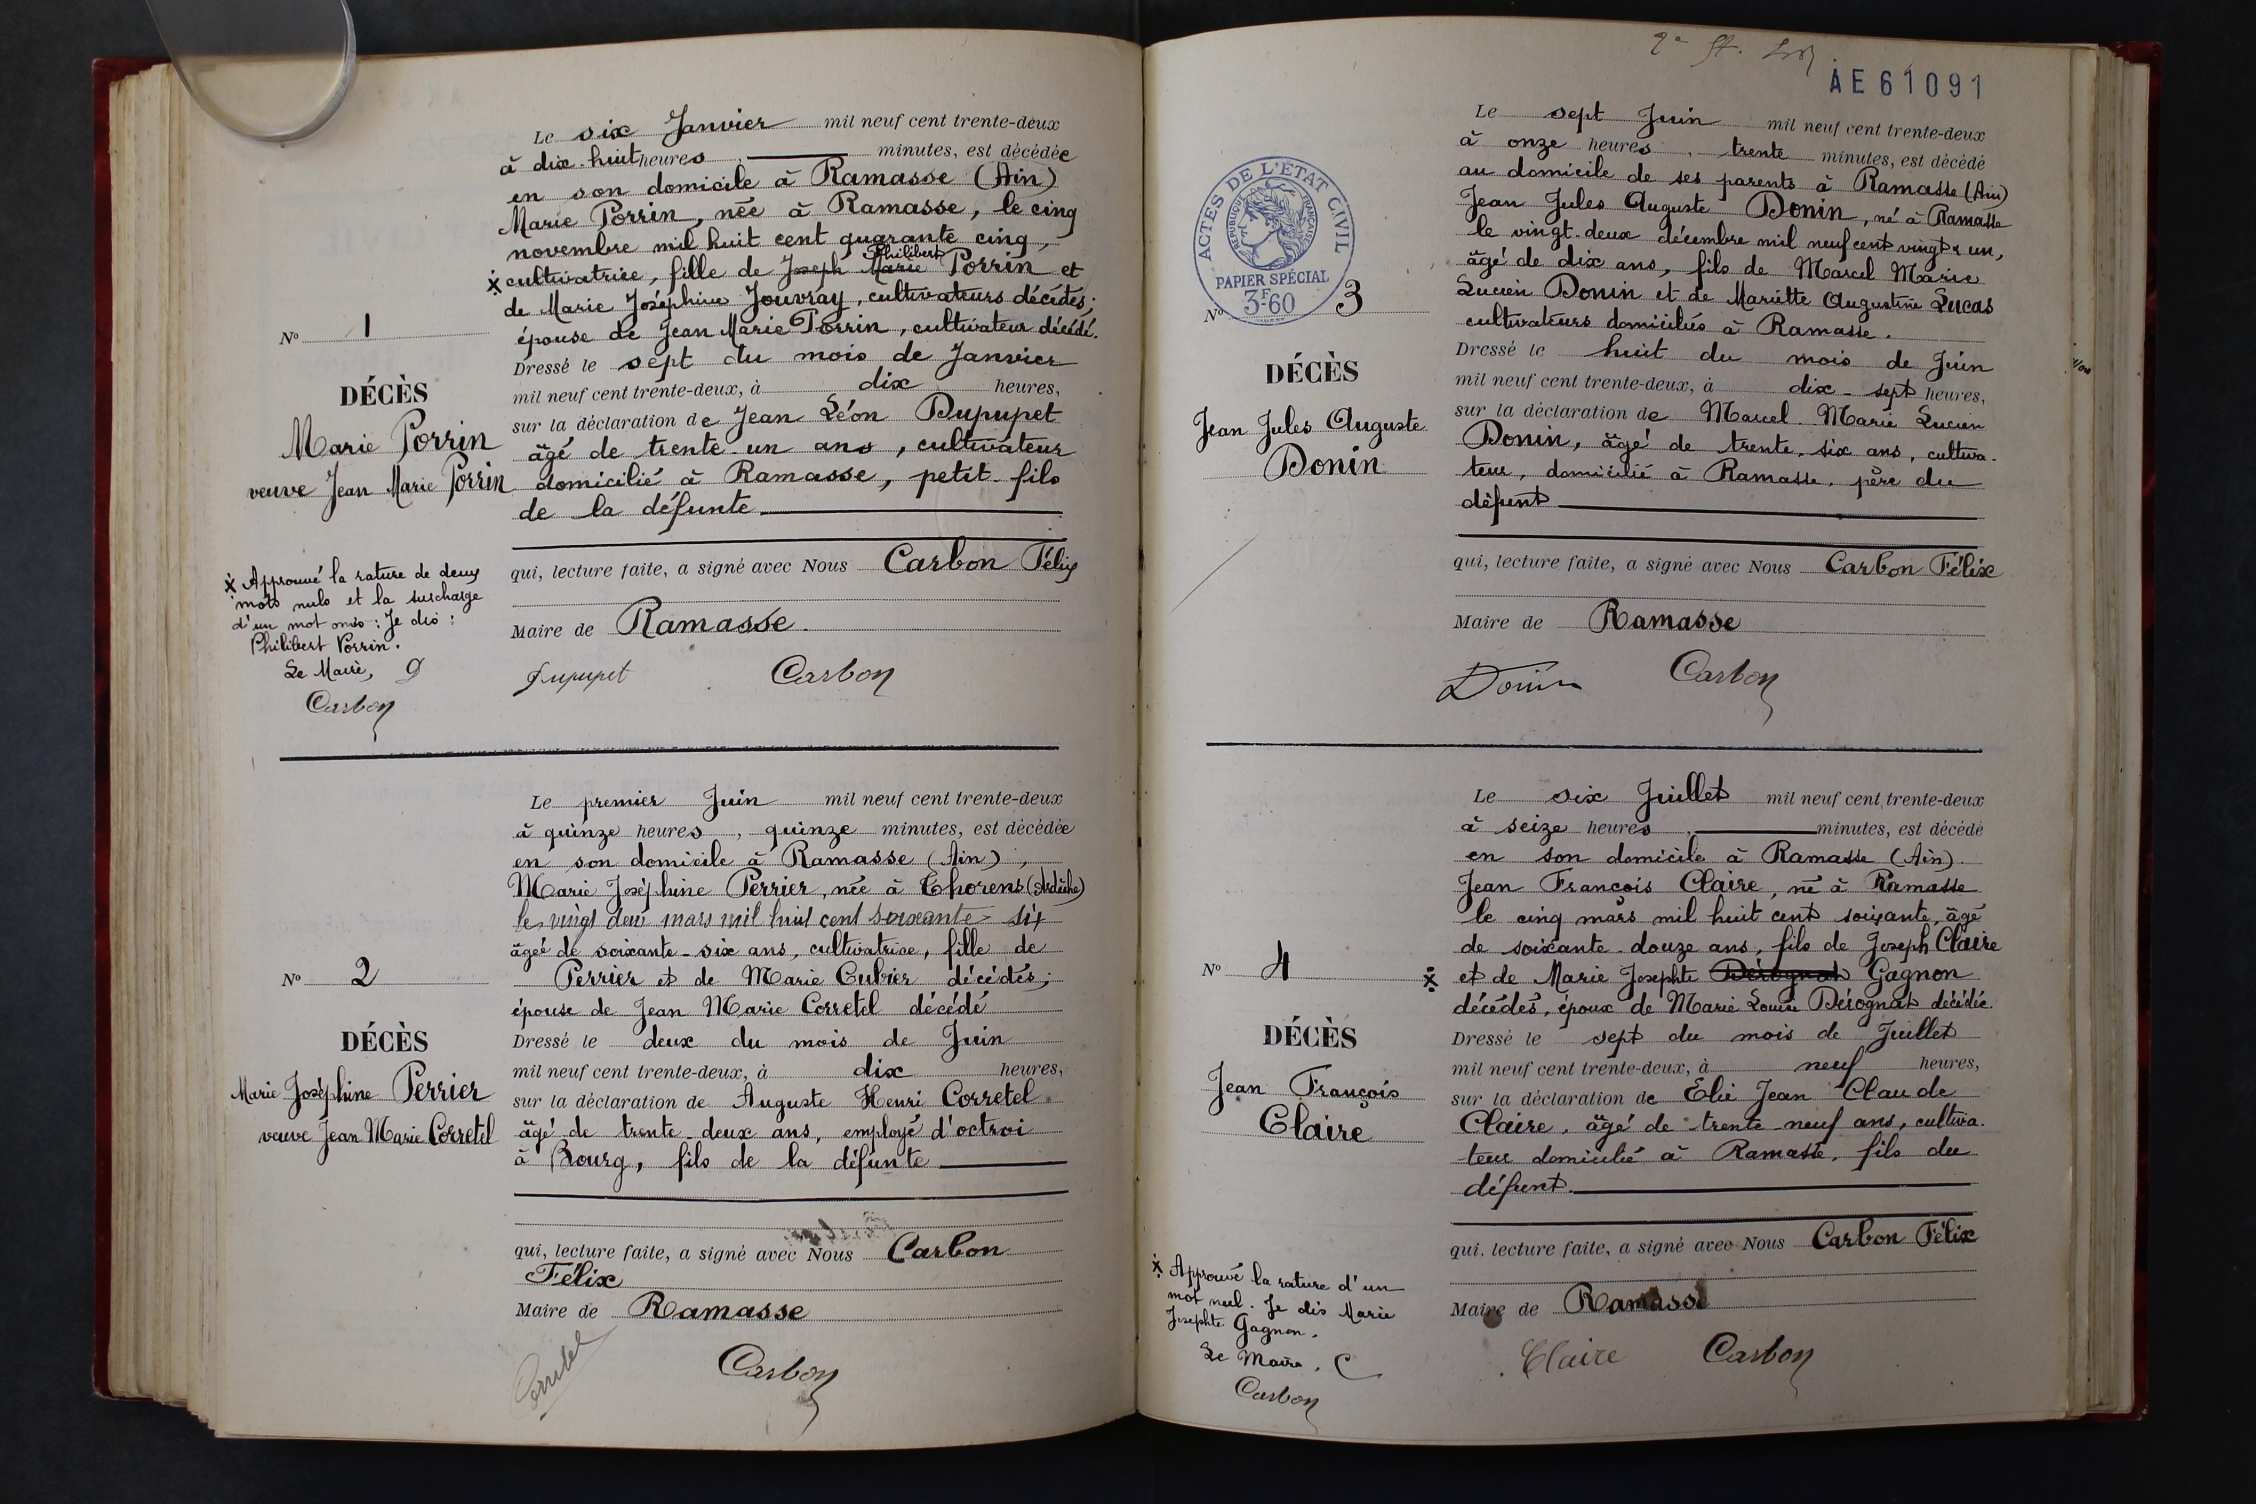 Le six Janvier mil neuf cent trente-deux
à dix-huit heures, minutes, est décédée
en son domicile à Ramasse (Ain)
Marie Porrin, née à Ramasse, le cinq
novembre mil huit cent quarante cinq,
Philibert
x cultivatrice, fille de Joseph Marie Porrin et
de Marie Joséphine Jouvray, cultivateurs décédés;
épouse de Jean Marie Porrin, cultivateur décédé.
No 1
Dressé le sept du mois de Janvier
mil neuf cent trente-deux, à dix heures,
DÉCÈS
sur la déclaration de Jean Léon Dupupet
Marie Porrin
âgé de trente-un ans, cultivateur
veuve Jean Marie Porrin
domicilié à Ramasse, petit-fils
de la défunte
qui, lecture faite, a signé avec Nous Carbon Félix
x Approuvé la rature de deux
mots nuls et la surcharge
d'un mot omis : Je dis :
Philibert Porrin.
Le Maire,
Carbon
Maire de Ramasse.
Dupupet Carbon
Le premier Juin mil neuf cent trente-deux
à quinze heures, quinze minutes, est décédée
en son domicile à Ramasse (Ain),
Marie Joséphine Perrier, née à Thorens (Ardèche)
le vingt deux mars mil huit cent soixante-six
âgée de soixante-six ans, cultivatrice, fille de
Perrier et de Marie Cubier décédés;
épouse de Jean Marie Corretel décédé
No 2
Dressé le deux du mois de Juin
mil neuf cent trente-deux, à dix heures,
DÉCÈS
sur la déclaration de Auguste Henri Corretel
Marie Joséphine Perrier
âgé de trente-deux ans, employé d'octroi
veuve Jean Marie Corretel
à Bourg, fils de la défunte
qui, lecture faite, a signé avec Nous Carbon
Félix
Maire de Ramasse
Corretel Carbon
AE61091
Le sept Juin mil neuf cent trente-deux
à onze heures, trente minutes, est décédé
au domicile de ses parents à Ramasse (Ain)
Jean Jules Auguste Donin, né à Ramasse
le vingt-deux décembre mil neuf cent vingt & un,
âgé de dix ans, fils de Marcel Marie
Lucien Donin et de Mariette Augustine Lucas
cultivateurs domiciliés à Ramasse.
ACTES DE L'ÉTAT CIVIL
RÉPUBLIQUE FRANÇAISE
PAPIER SPÉCIAL
3F-60
No 3
Dressé le huit du mois de Juin
mil neuf cent trente-deux, à dix-sept heures,
DÉCÈS
sur la déclaration de Marcel Marie Lucien
Jean Jules Auguste
Donin, âgé de trente-six ans, cultiva-
Donin
teur, domicilié à Ramasse, père du
défunt
qui, lecture faite, a signé avec Nous Carbon Félix
Maire de Ramasse
Donin Carbon
Le six Juillet mil neuf cent trente-deux
à seize heures, minutes, est décédé
en son domicile à Ramasse (Ain).
Jean François Claire, né à Ramasse
le cinq mars mil huit cent soixante, âgé
de soixante-douze ans, fils de Joseph Claire
x et de Marie Josephte Dérognat Gagnon
décédés, époux de Marie Louise Dérognat décédée.
No 4
Dressé le sept du mois de Juillet
mil neuf cent trente-deux, à neuf heures,
DÉCÈS
sur la déclaration de Elie Jean Claude
Jean François
Claire, âgé de trente-neuf ans, cultiva-
Claire
teur domicilié à Ramasse, fils du
défunt.
qui, lecture faite, a signé avec Nous Carbon Félix
x Approuvé la rature d'un
mot nul. Je dis Marie
Josephte Gagnon.
Le Maire,
Carbon
Maire de Ramasse
Claire Carbon